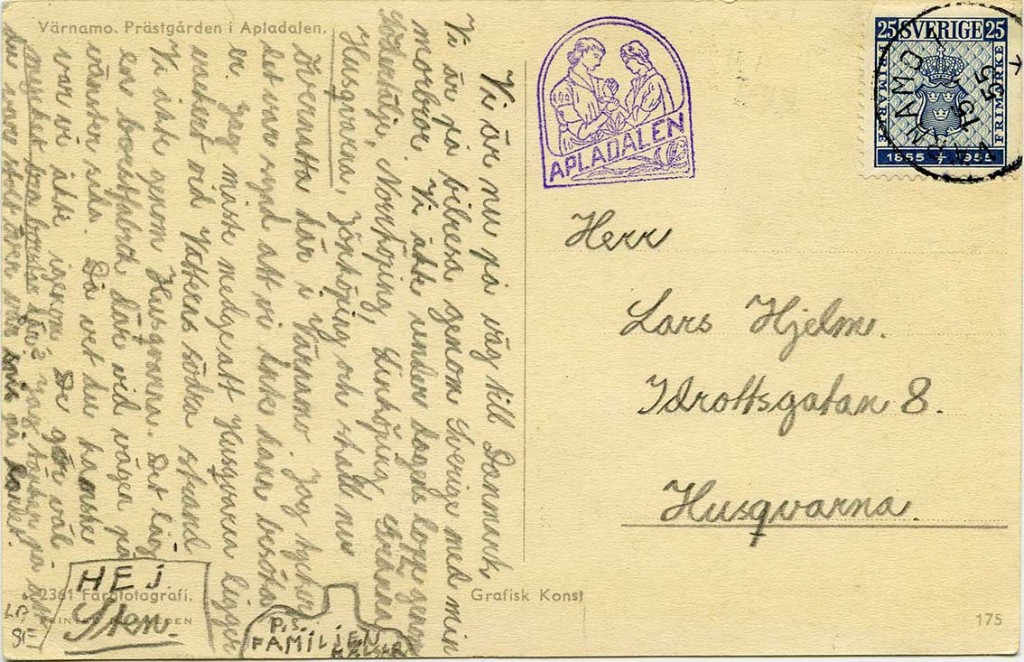 Värnamo. Prästgården i Apladalen.
Vi är nu på väg till Danmark
Vi är på bilresa genom Sverige med min
morbror. Vi åkte under dagens lopp genom
Södertälje, Norrköping, Linköping, Gränna,
Husqvarna, Jönköping och skall nu
övernatta här i Värnamo. Jag tycker
det var synd att vi inte hann besöka
er. Jag måste medge att Husqvarna ligger
vackert vid Vätterns södra strand
Vi åkte genom Husqvarna. Det låg
en borstfabrik där vid vägen på
vänster sida. Då vet du kanske
var vi åkte igenom. De gör väl
mycket bra borstar där? jag tänker på
du
HEJ.
Sten.
P.S.
FAMILJEN
HÄLSAR
2361 Färgfotografi.
Grafisk Konst
175
APLADALEN
25 SVERIGE 25
FRIMÄRKE
FRIMÄRKE
1855 1955
VÄRNAMO
55
Herr
Lars Hjelm.
Idrottsgatan 8.
Husqvarna.